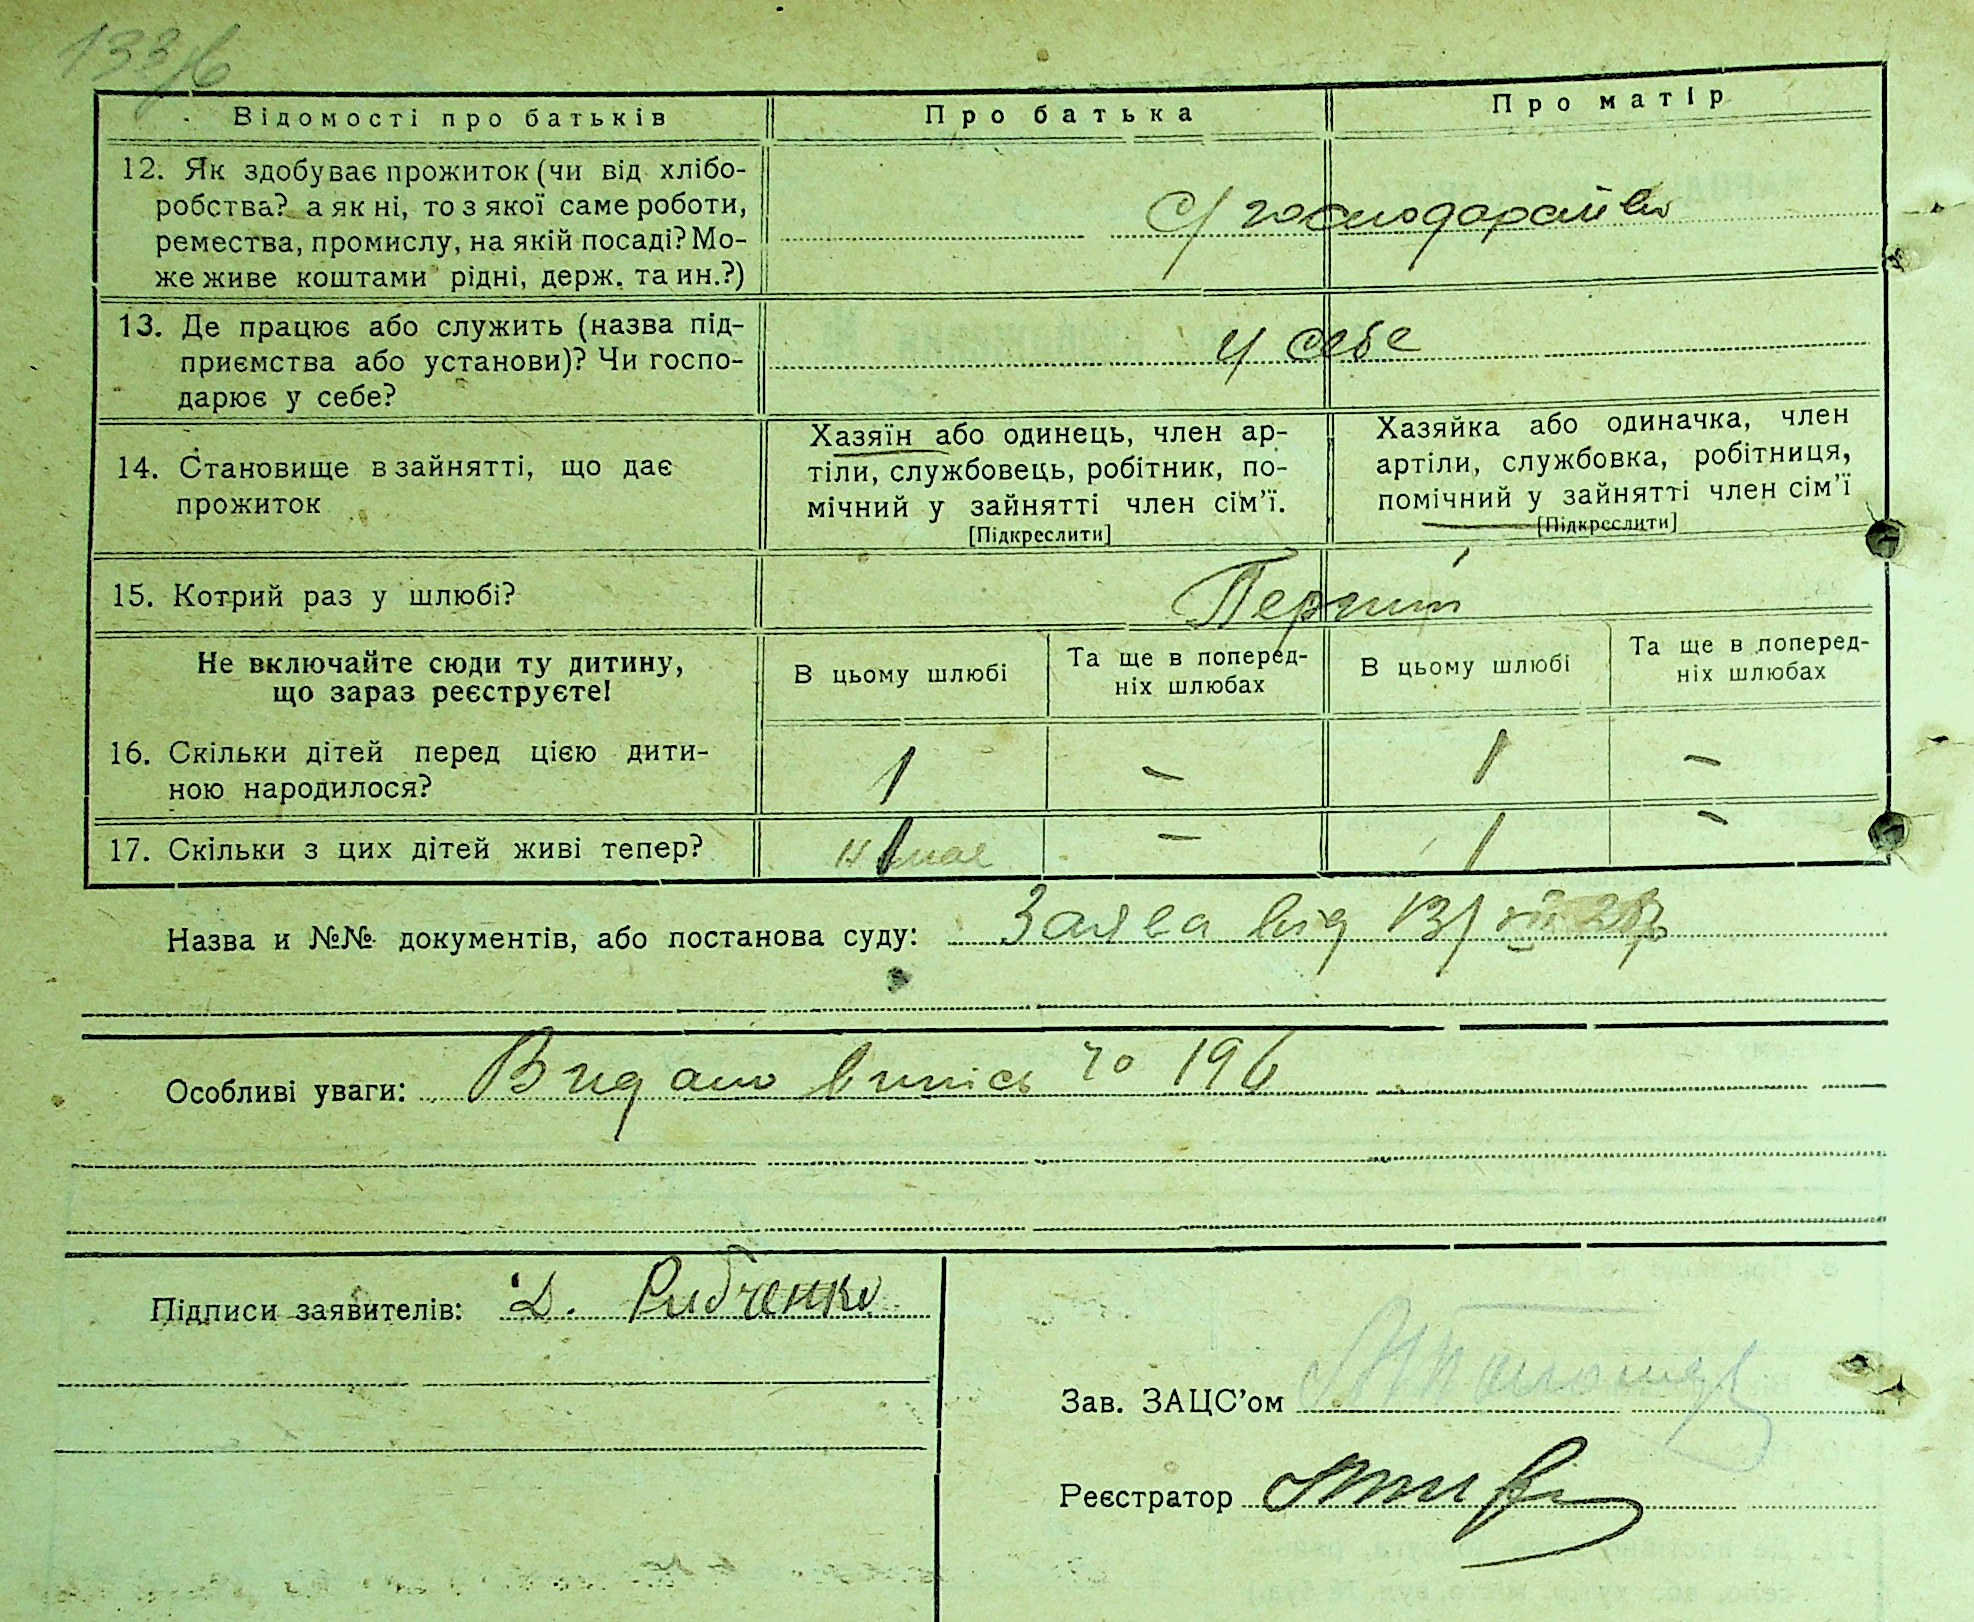 Відомості про батьків
Про батька
Про матір
12. Як здобуває прожиток (чи від хлібо-
робства? а як ні, то з якої саме роботи,
ремества, промислу, на якій посаді? Мо-
же живе коштами рідні, держ. та ин.?)
С/господарство
13. Де працює або служить (назва під-
приємства або установи)? Чи госпо-
дарює у себе?
У себе
14. Становище в зайнятті, що дає
прожиток
Хазяїн або одинець, член ар-
тіли, службовець, робітник, по-
мічний у зайнятті член сім'ї.
[Підкреслити]
Хазяйка або одиначка, член
артіли, службовка, робітниця,
помічний у зайнятті член сім'ї
[Підкреслити]
15. Котрий раз у шлюбі?
Перший
Не включайте сюди ту дитину,
що зараз реєструєте!
В цьому шлюбі
Та ще в поперед-
ніх шлюбах
В цьому шлюбі
Та ще в поперед-
ніх шлюбах
16. Скільки дітей перед цією дити-
ною народилося?
1 – 1 –
17. Скільки з цих дітей живі тепер?
1 – 1 –
Назва и №№ документів, або постанова суду: Заява від 13/
Особливі уваги: Видано випись 196
Підписи заявителів: Д. Рибченко
Зав. ЗАЦС'ом
Реєстратор